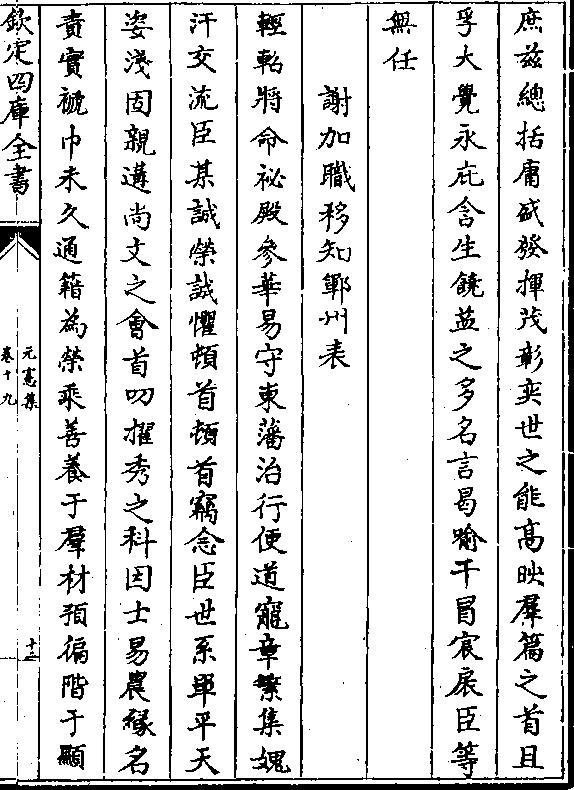 庶兹總括庸盛發揮茂彰奕世之能高映羣篇之首且
孚大覺永庇含生饒益之多名言曷喻干冒宸扆臣等
無任
謝加職移知鄆州表
輕軺將命祕殿參華易守東藩治行便道寵章繁集媿
汗交流臣某誠榮誠懼頓首頓首竊念臣世系單平天
姿淺固親遘尚文之會首叨擢秀之科因士易農緣名
責實褫巾未久通籍為榮乘善養于羣材預徧階于顯
欽定四庫全書
元憲集
卷十九
十二